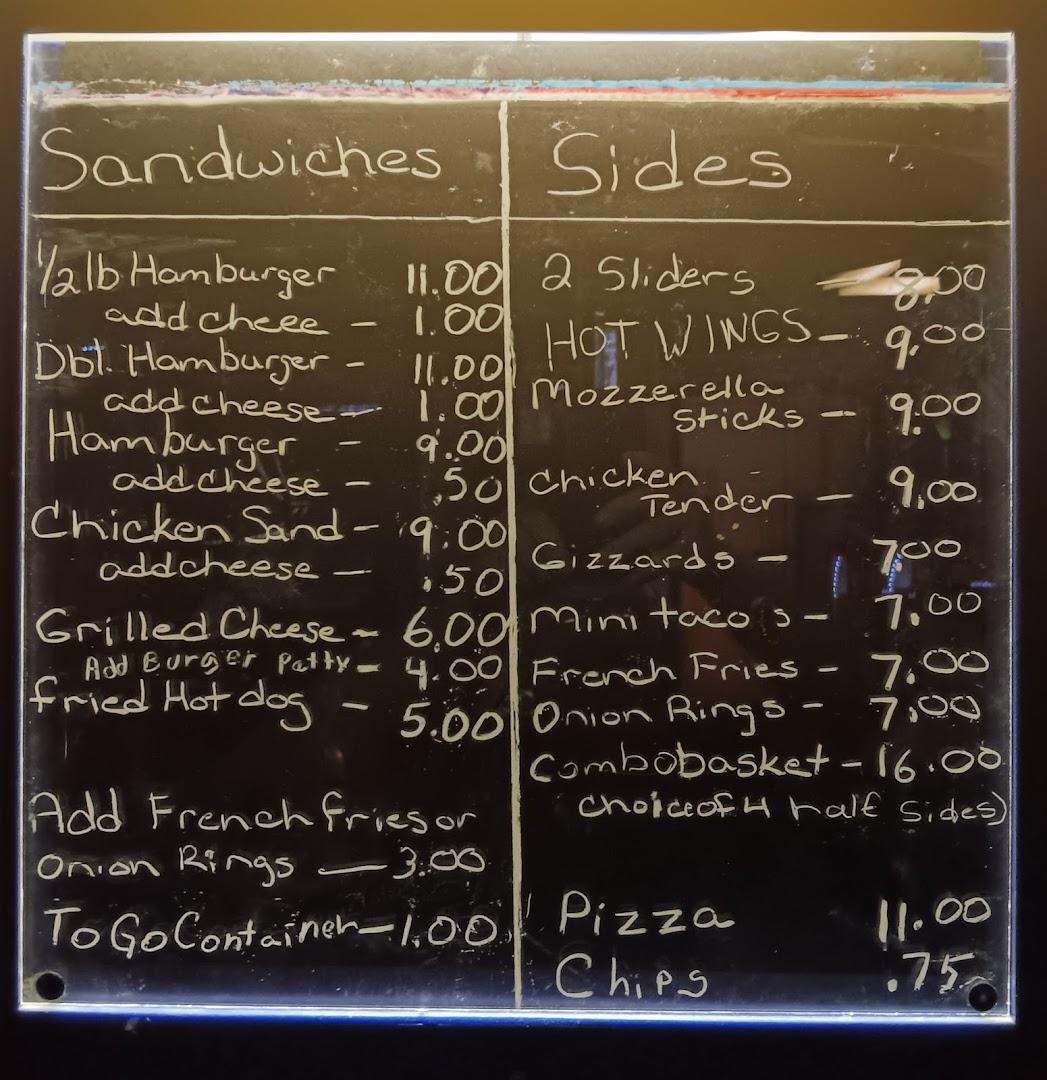 Sandwiches
1/2 lb Hamburger 11.00
add cheee - 1.00
Dbl. Hamburger - 11.00
add cheese - 1.00
Hamburger - 9.00
add cheese - .50
Chicken Sand - 9.00
add cheese - .50
Grilled Cheese - 6.00
Add Burger Patty - 4.00
fried Hot dog - 5.00
Add French fries or
Onion Rings - 3.00
To Go Container - 1.00
Sides
2 Sliders - 8.00
HOT WINGS - 9.00
Mozzerella
Sticks - 9.00
Chicken
Tender - 9.00
Gizzards - 7.00
Mini taco's - 7.00
French Fries - 7.00
Onion Rings - 7.00
Combobasket - 16.00
choice of 4 half sides)
Pizza 11.00
Chips .75